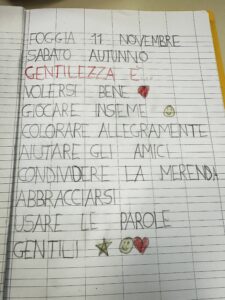 FOGGIA 11 NOVEMBRE
SABATO AUTUNNO
GENTILEZZA E...
VOLERSI BENE
GIOCARE INSIEME
COLORARE ALLEGRAMENTE
AIUTARE GLI AMICI
CONDIVIDERE LA MERENDA
ABBRACCIARSI
USARE LE PAROLE
GENTILI